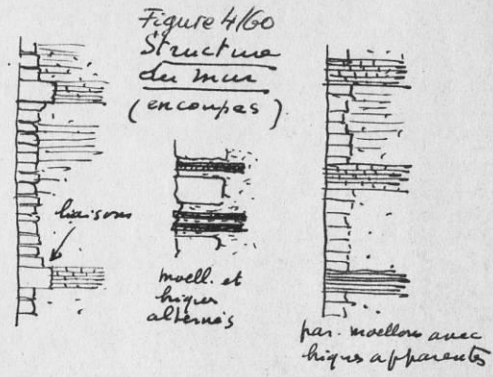 Figure 4/60
Structure
du mur
(en coupes)
liaisons
moell. et
briques
alternés
par. moellons avec
briques apparentes